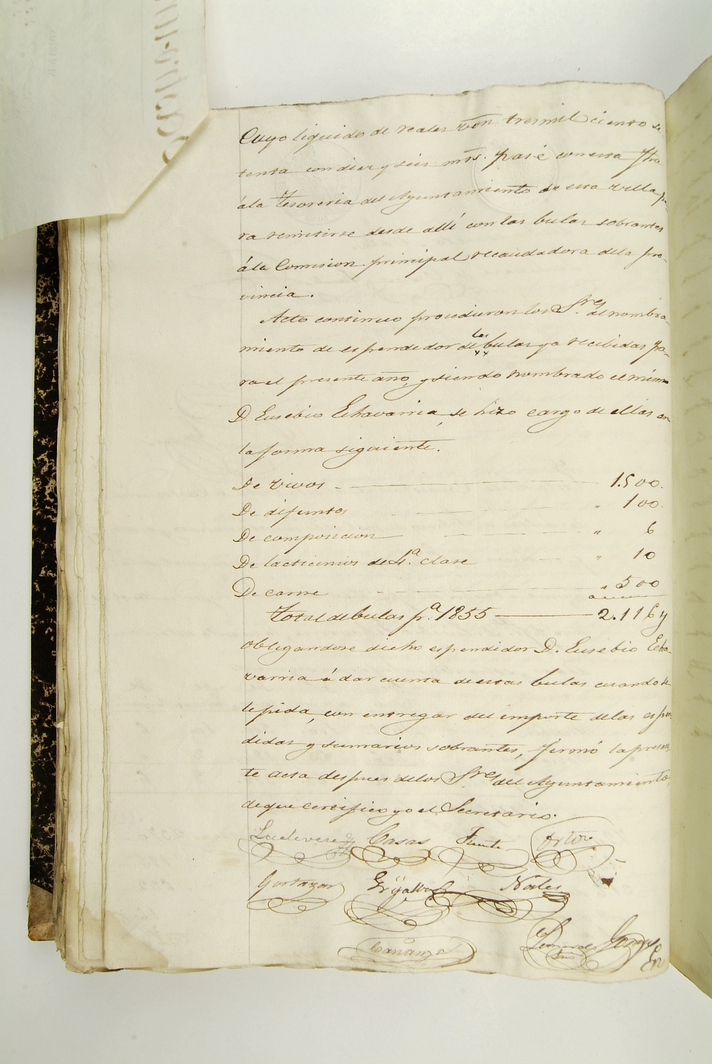 Cuyo liquido de reales von tresmil ciento se
tenta con diez y seis mrs. pasé con esta fha
á la Tesoreria del Ayuntamiento de esta villa pa
ra remitirse desde allí con las bulas sobrantes
á la Comision principal recaudadora de la pro-
vincia.
Acto continuo procedieron los Sres. al nombra
miento de espendedor de las bulas ya recibidas pa-
ra el presente año, y siendo nombrado el mismo
D. Eusebio Echavarria, se hizo cargo de ellas en
la forma siguiente.
De vivos - 1.500.
De difuntos " 100.
De composicion " 6
De lacticinios de 4.a clase " 10
De carne " 500
Total de bulas pa. 1855 — 2.116 y
obligandose dicho espendidor D. Eusebio Echa
varria á dar cuenta de estas bulas cuando se
le pida, con entregar del importe de las espen
didas y sumarios sobrantes, firmó la presen
te acta despues de los Sres. del Ayuntamiento
de que certifico yo el Secretario.
Casas Fuente
Gortazar Grijalba Nales
Carranza